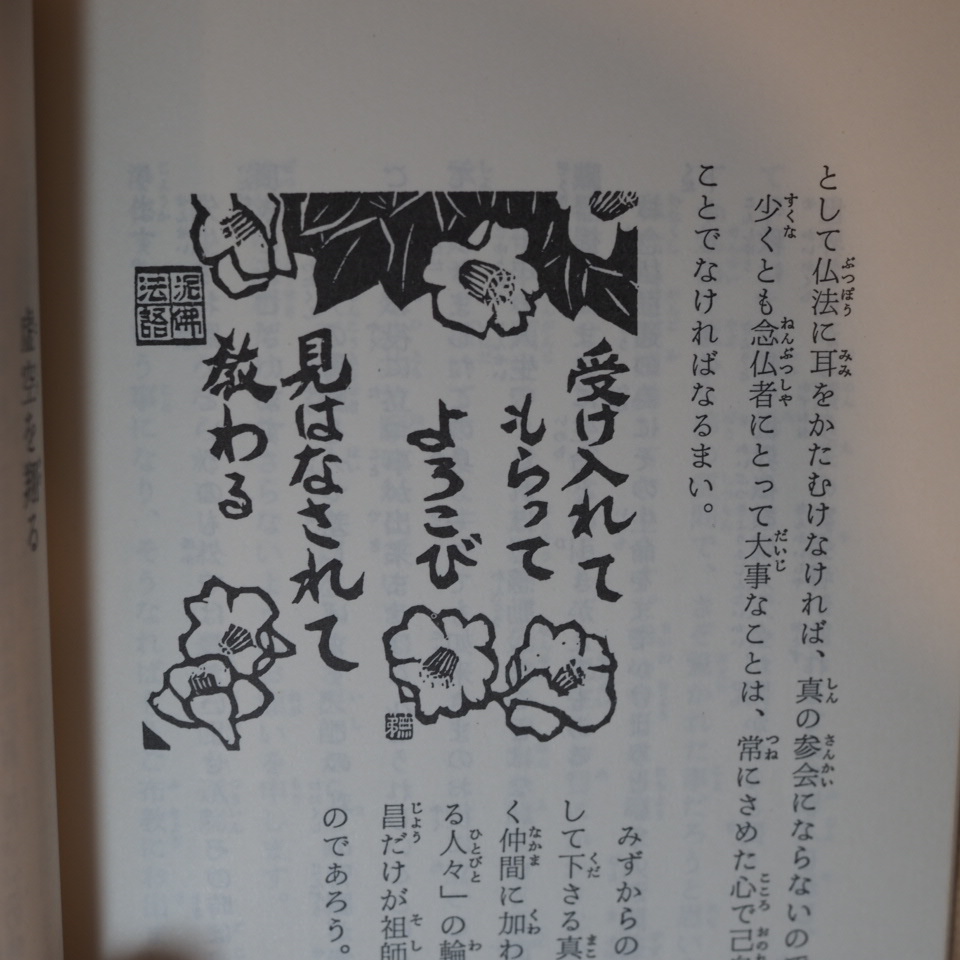 として仏法に耳をかたむけなければ、真の参会にならないので
少くとも念仏者にとって大事なことは、常にさめた心で己
ことでなければなるまい。
受け入れて
もらって
よろこび
見はなされて
教わる
泥佛
法語
みずからの
して下さる真
く仲間に加わ
る人々」の輪
昌だけが祖師
のであろう。
虚空を翔る